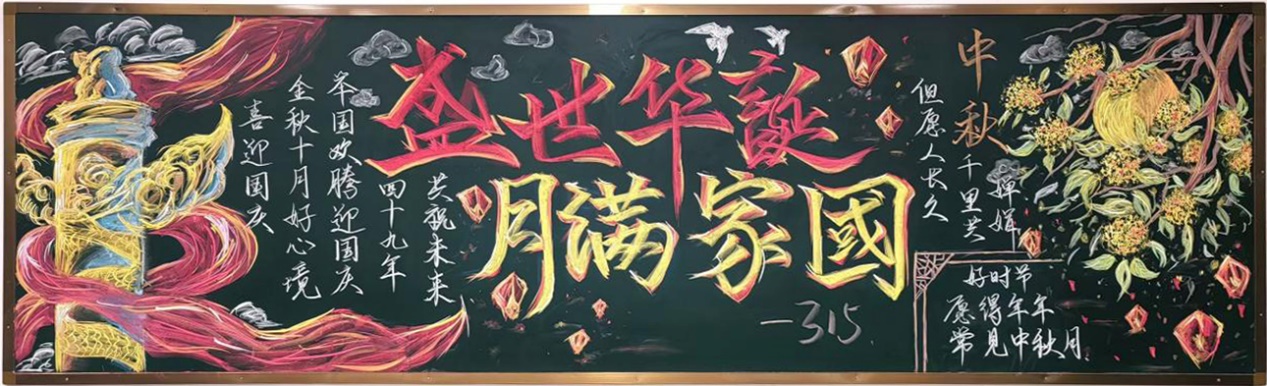 盛世华誕
月满家國
一315
喜迎国庆
金秋十月好心境
举国欢腾迎国庆
四十九年
共祝未来
中秋
但愿人长久
千里共
婵娟
好时节
愿得年年
常见中秋月